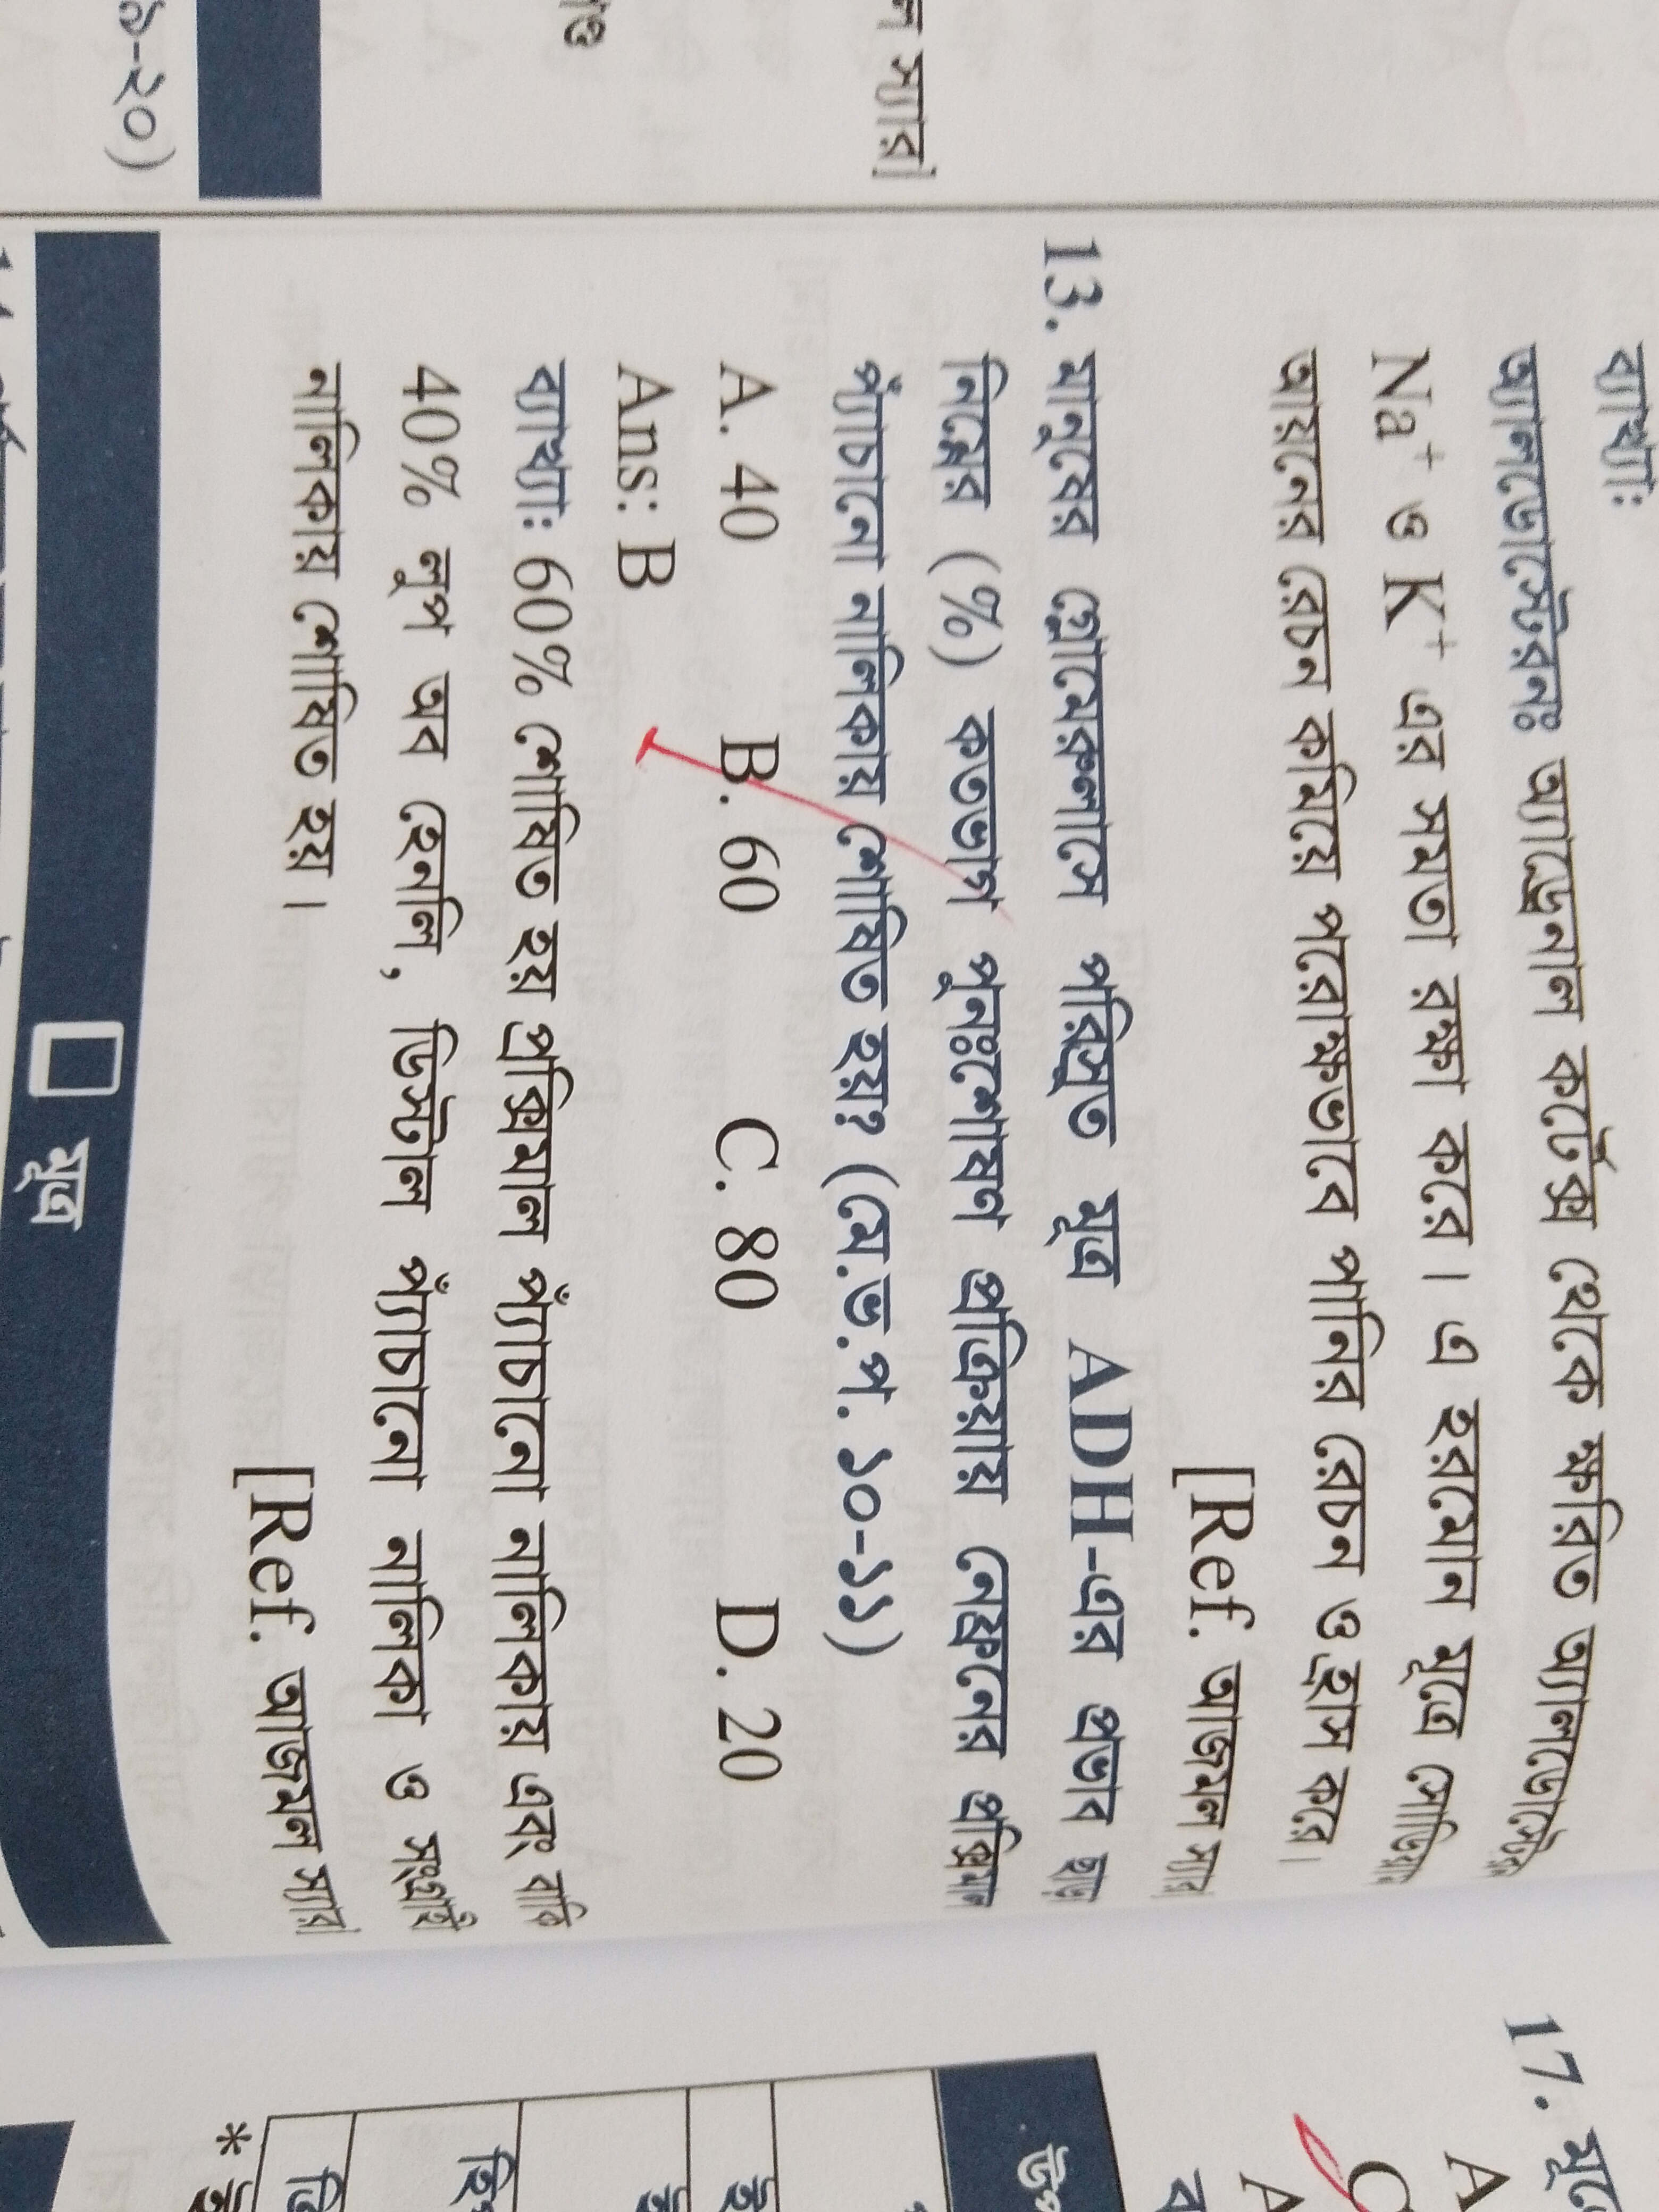 ন স্যার]
ও
৯-২০)
ব্যাখ্যাঃ
অ্যালডোস্টেরনঃ অ্যাড্রেনাল কর্টেক্স থেকে ক্ষরিত অ্যালডোস্টেরন
Na⁺ ও K⁺ এর সমতা রক্ষা করে। এ হরমোন মূত্রে সোডিয়াম
আয়নের রেচন কমিয়ে পরোক্ষভাবে পানির রেচন ও হ্রাস করে।
[Ref. আজমল স্যার]
13. মানুষের গ্লোমেরুলাসে পরিস্রুত মূত্র ADH-এর প্রভাব ছাড়া
নিম্নের (%) কতভাগ পুনঃশোষণ প্রক্রিয়ায় নেফ্রনের প্রক্সিমাল
প্যাঁচানো নালিকায় শোষিত হয়? (মে.ভ.প. ১০-১১)
A. 40 B. 60 C. 80 D. 20
Ans: B
ব্যাখ্যা: 60% শোষিত হয় প্রক্সিমাল প্যাঁচানো নালিকায় এবং বাকি
40% লুপ অব হেনলি, ডিস্টাল প্যাঁচানো নালিকা ও সংগ্রাহী
নালিকায় শোষিত হয়।
[Ref. আজমল স্যার]
মূত্র
17. মূত্রে
A
C
A
ব